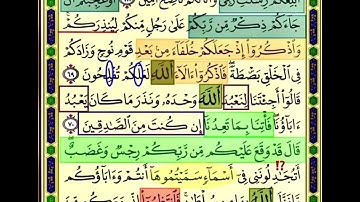 أُبَلِّغُكُمْ رِسَٰلَٰتِ رَبِّى
جَآءَكُمْ ذِكْرٌ مِّن رَّبِّكُمْ عَلَىٰ رَجُلٍ مِّنكُمْ لِيُنذِرَكُمْ
وَٱذْكُرُوٓا۟ إِذْ جَعَلَكُمْ خُلَفَآءَ مِنۢ بَعْدِ قَوْمِ نُوحٍ وَزَادَكُمْ
فِى ٱلْخَلْقِ بَصْۜطَةً فَٱذْكُرُوٓا۟ ءَالَآءَ ٱللَّهِ لَعَلَّكُمْ تُفْلِحُونَ ٦٩
قَالُوٓا۟ أَجِئْتَنَا لِنَعْبُدَ ٱللَّهَ وَحْدَهُۥ وَنَذَرَ مَا كَانَ يَعْبُدُ
ءَابَآؤُنَا فَأْتِنَا بِمَا تَعِدُنَآ إِن كُنتَ مِنَ ٱلصَّٰدِقِينَ ٧٠
قَالَ قَدْ وَقَعَ عَلَيْكُم مِّن رَّبِّكُمْ رِجْسٌ وَغَضَبٌ
أَتُجَٰدِلُونَنِى فِىٓ أَسْمَآءٍ سَمَّيْتُمُوهَآ أَنتُمْ وَءَابَآؤُكُم ⁉